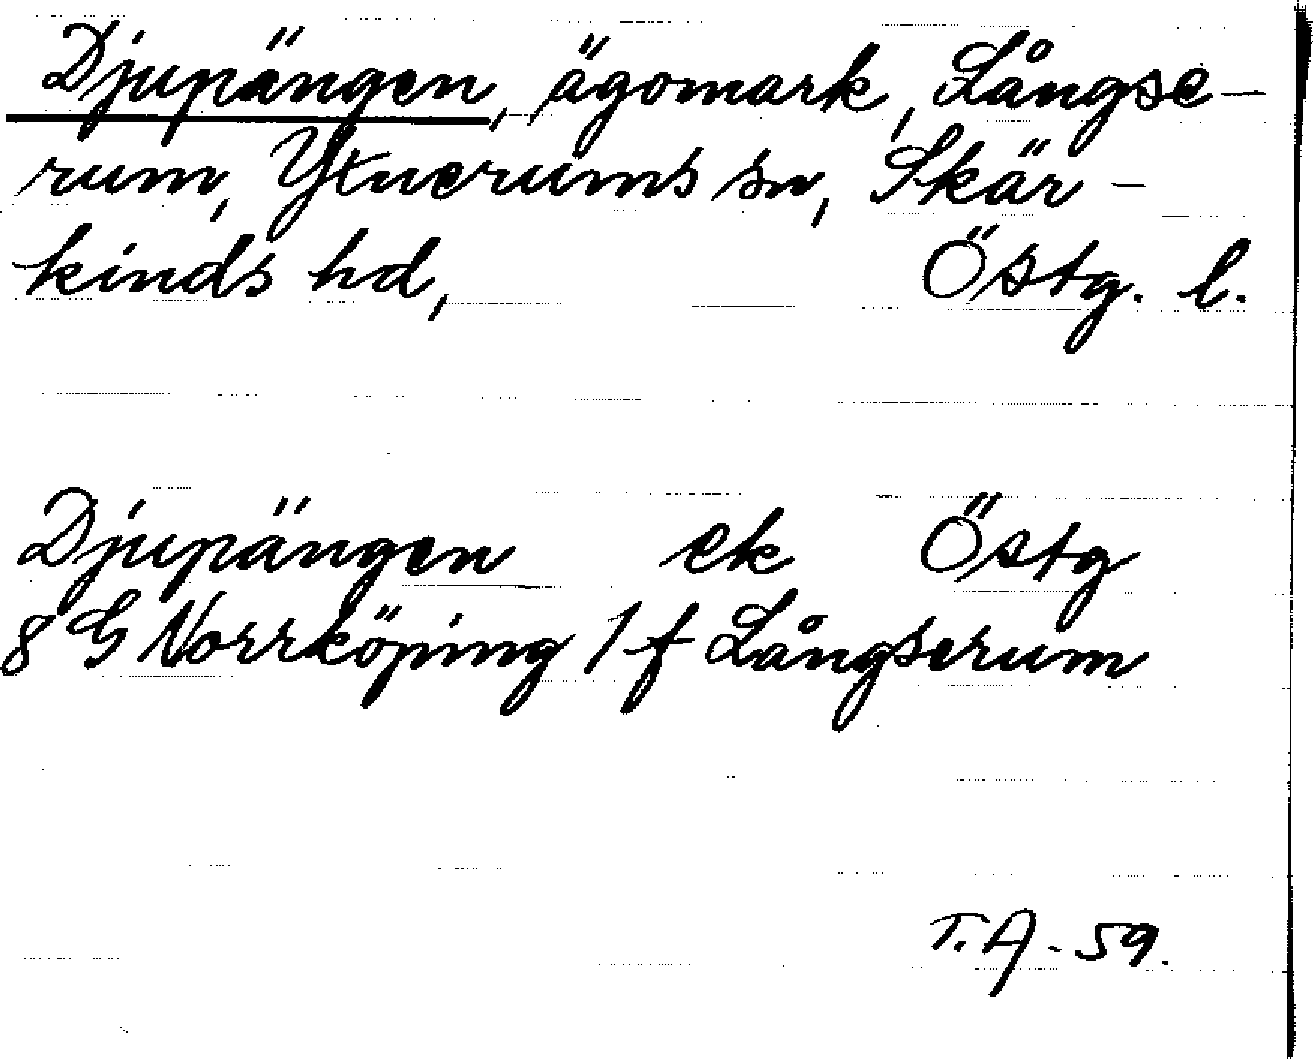 Djupängen, ägomark, Långse-
rum, Ytnerums sn, Skär-
kinds hd, Östg. l.
Djupängen ek Östg
8 G Norrköping 1 f Långserum
T.A - 59.